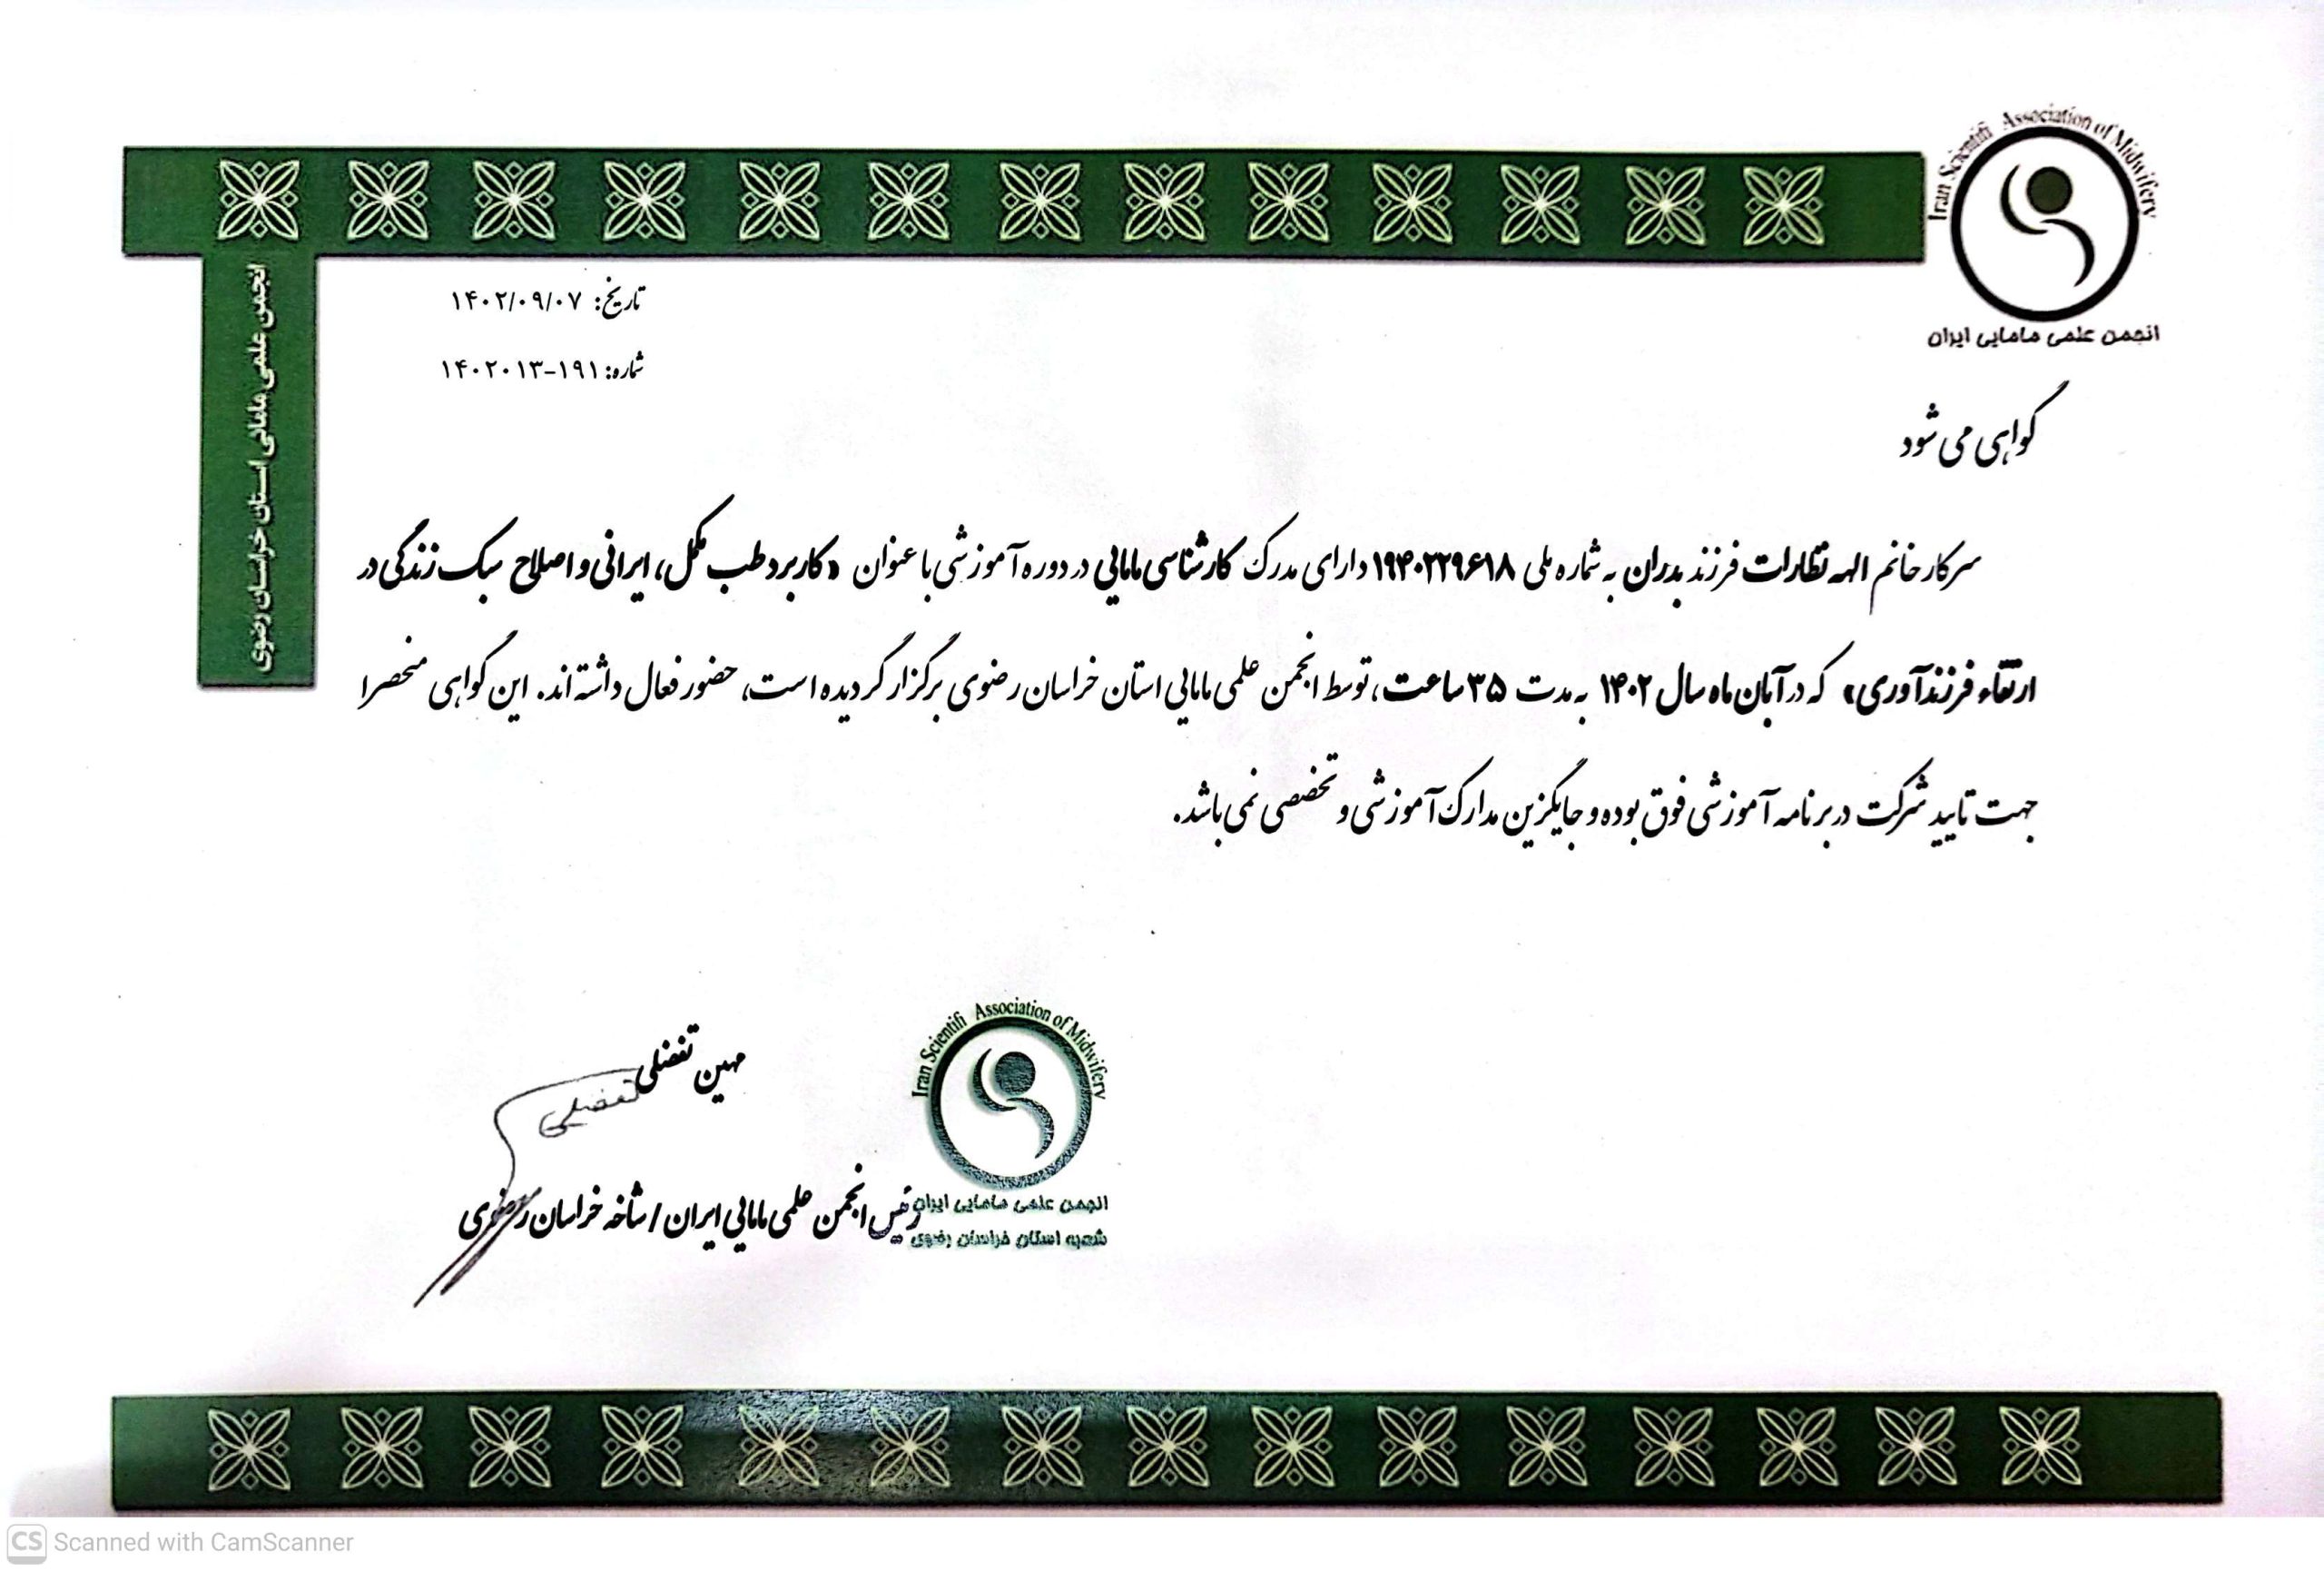 Iran Scientifi Association of Midwifery
انجمن علمی مامایی ایران
انجمن علمی مامائی استان خراسان رضوی
تاریخ: ۱۴۰۲/۰۹/۰۷
شماره: ۱۹۱-۱۴۰۲۰۱۳
گواهی می شود
سرکار خانم الهه نظارات فرزند بدران به شماره ملی ۱۹۴۰۲۲۹۶۱۸ دارای مدرک کارشناسی مامایی در دوره آموزشی با عنوان «کاربرد طب مکمل، ایرانی و اصلاح سبک زندگی در
ارتقاء فرزندآوری» که در آبان ماه سال ۱۴۰۲ به مدت ۳۵ ساعت، توسط انجمن علمی مامایی استان خراسان رضوی برگزار گردیده است، حضور فعال داشته اند. این گواهی منحصرا
جهت تایید شرکت در برنامه آموزشی فوق بوده و جایگزین مدارک آموزشی و تخصصی نمی باشد.
مهین تفضلی
تفضلی
رئیس انجمن علمی مامایی ایران / شاخه خراسان رضوی
Iran Scientifi Association of Midwifery
انجمن علمی مامایی ایران
شعبه استان خراسان رضوی
CS Scanned with CamScanner